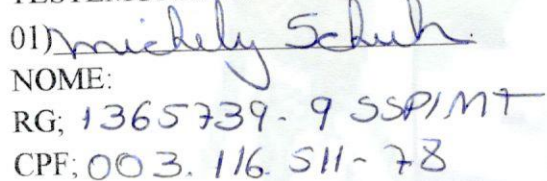 01) Michely Schuh
NOME:
RG; 1365739-9 SSP/MT
CPF; 003.116.511-78